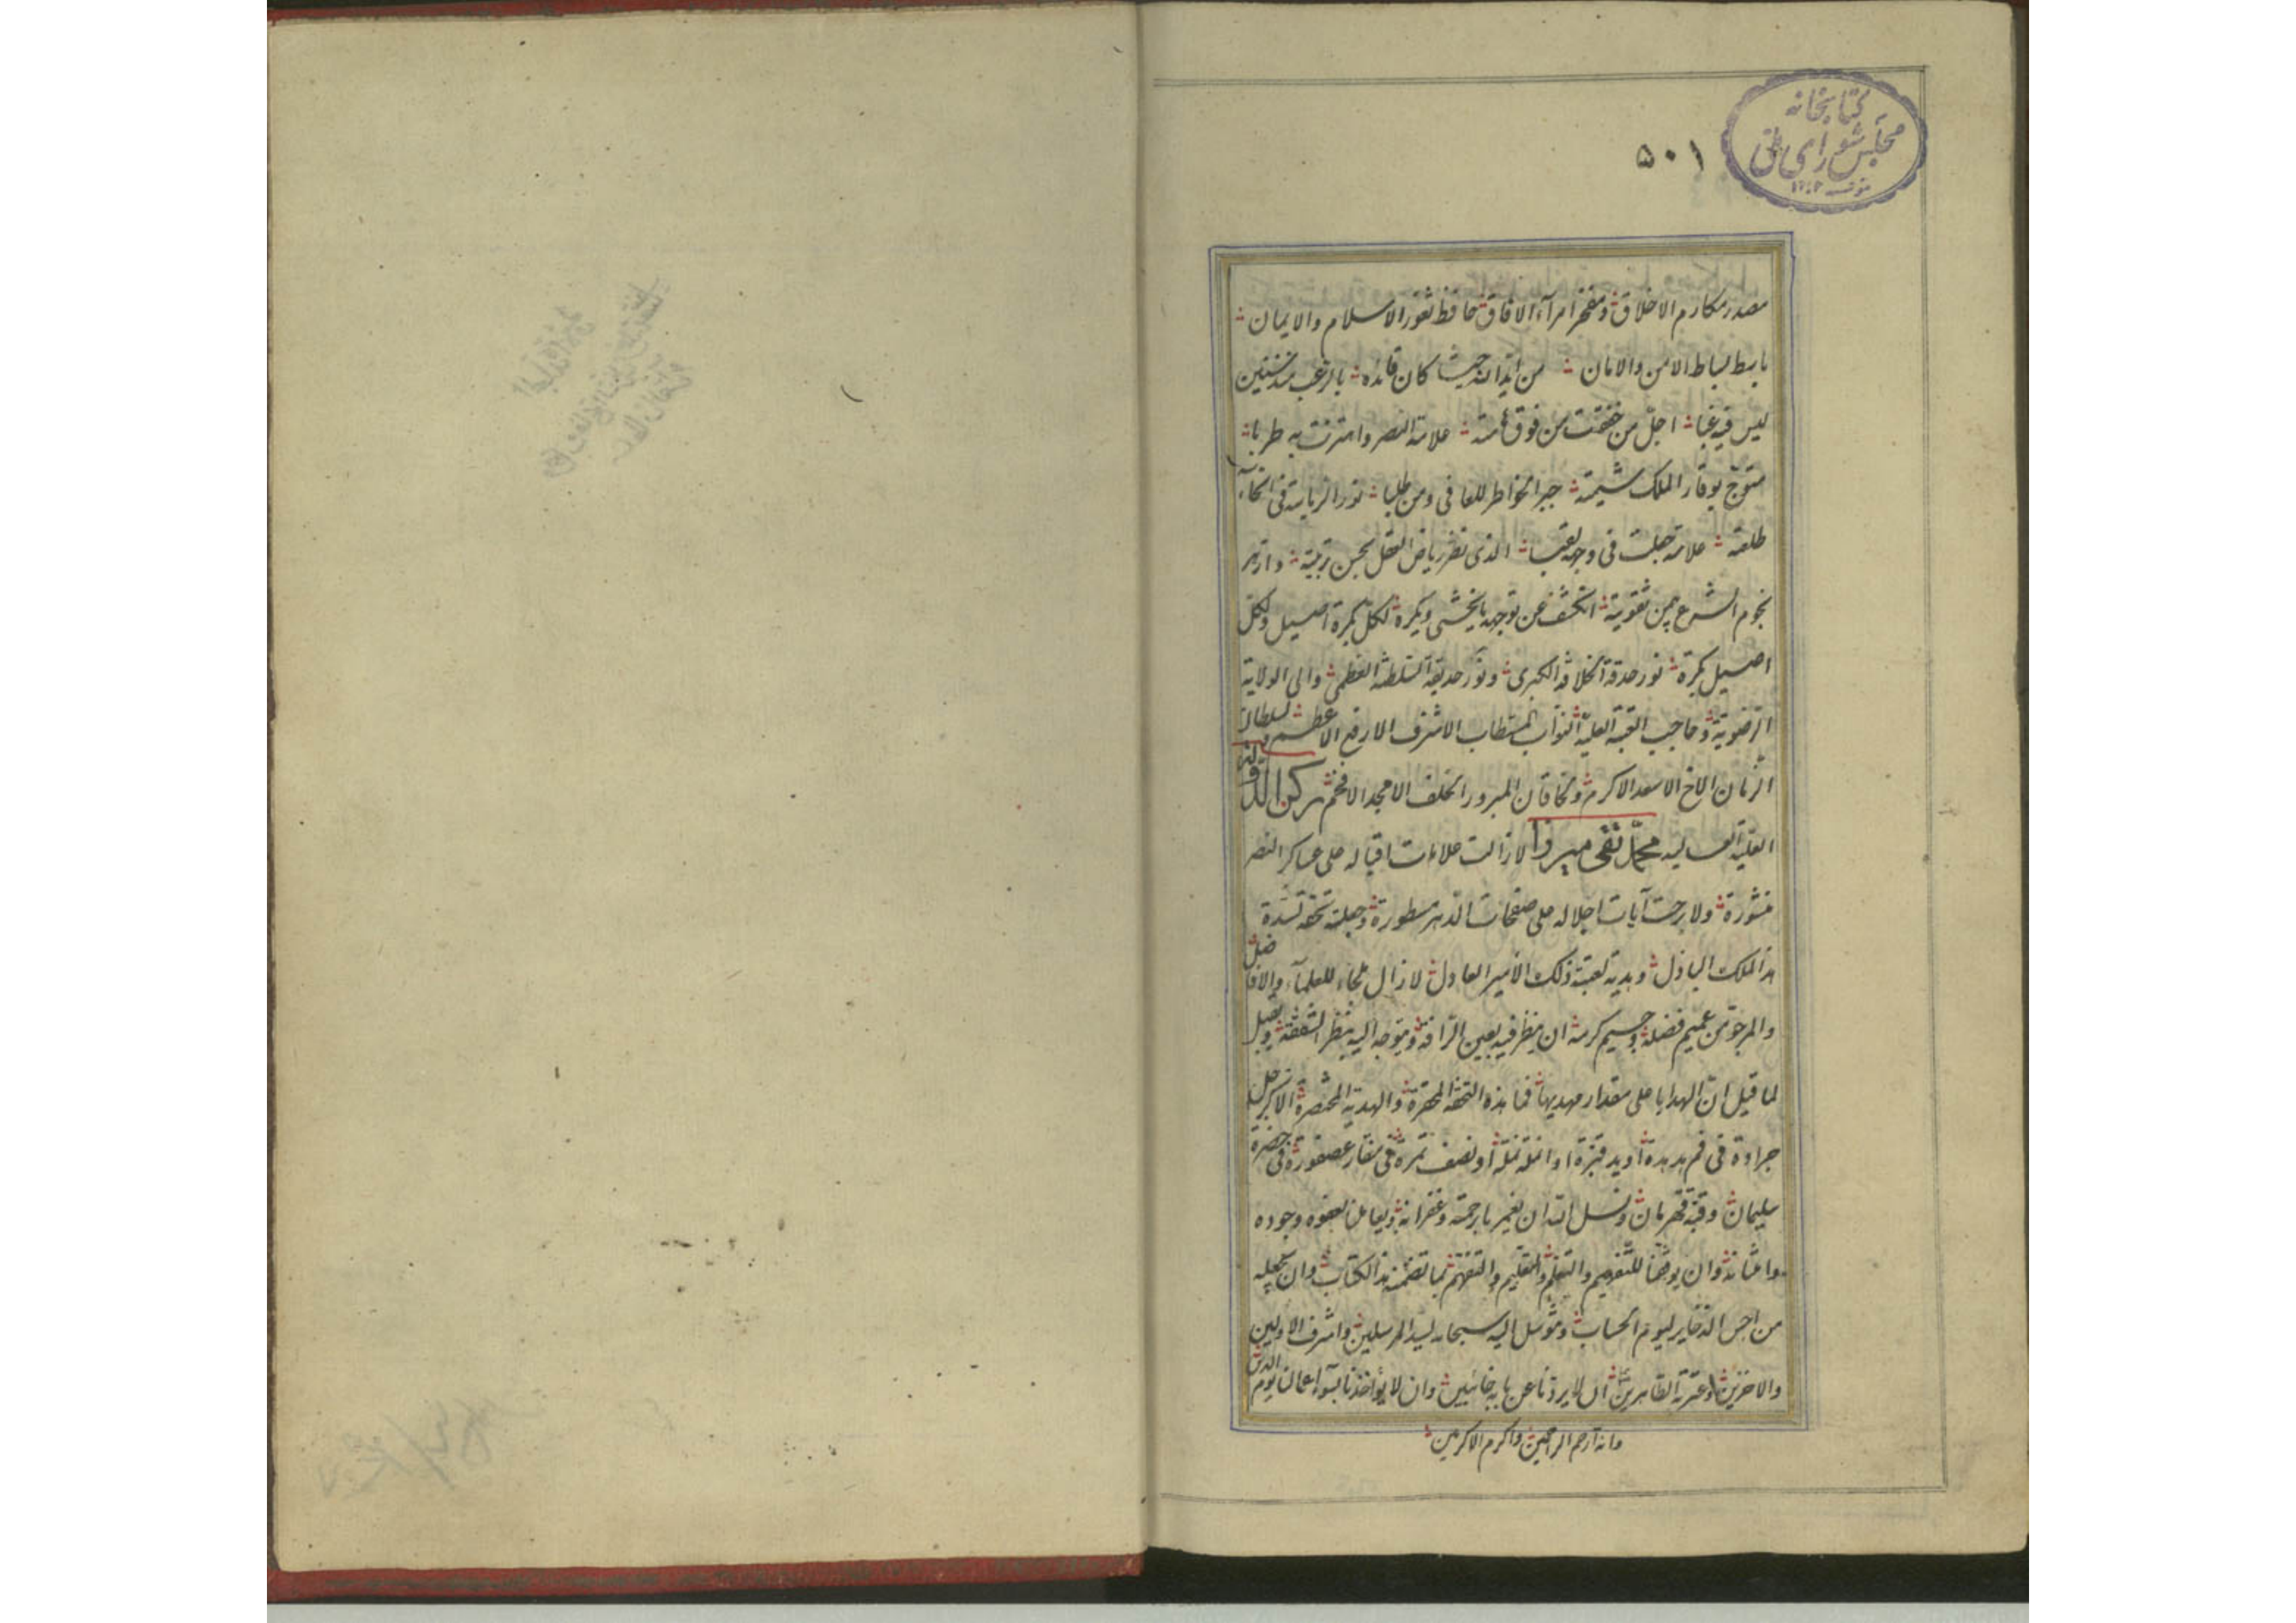 كتابخانه
مجلس شورای ملی
۵۰۱
مصدر مكارم الاخلاق ومفخر امرآء الافاق حافظ ثغور الاسلام والايمان
باسط بساط الامن والامان من ايد الله حيث كان قائده بالرعب
ليس فيه اجل من خفقت من فوق علامة النصر واهتزت به طربا
متوج بوقار الملك شيمته جبر الخواطر للعافى ومن طلبا نور الرياسة فى
طلعته علامة جعلت فى وجهه الذى نضر رياض العقل بحسن تربيته وازهر
نجوم الشرع بيمن تقويته انكشف عن توجهه ما يخشى ويكره لكل بكرة اصيل ولكل
اصيل بكرة نور حدقة الخلافة الكبرى ونور حديقة السلطنة العظمى والى الولاية
الرضوية وحاجب القبة العلية النواب المستطاب الاشرف الارفع الاعظم لسلطان
الزمان الاخ الاسعد الاكرم وللخاقان المبرور الخلف الامجد الافخم ركن الدولة
العلية العاليه محمد تقى ميرزا لا زالت علامات اقباله على عساكر النصر
منشورة ولا برحت آيات اجلاله على صفحات الدهر مسطورة وجعلته تحفة لسدة
هذا الملك الباذل وهدية لعتبة ذلك الامير العادل لا زال ملجاء للعلمآء والافاضل
والمرجو من عميم فضله وجسيم كرمه ان ينظر فيه بعين الرأفة ويتوجه اليه بنظر الشفقة ويقبل
لما قيل ان الهدايا على مقدار مهديها فما هذه التحفة المحقرة والهدية المختصرة الا كرجل
جرادة فى فم هدهدة او يد قبرة او انملة نملة او نصف تمرة فى منقار عصفورة فى حضرة
سليمان وقبة قهرمان ونسئل الله ان يغمرنا برحمته وغفرانه ويعاملنا بعفوه وجوده
وامتنانه وان يوفقنا للتفهيم والتعلم والتعليم والتفهم بما تضمنه هذا الكتاب وان يجعله
من احسن الذخاير ليوم الحساب ونتوسل اليه سبحانه بسيد المرسلين واشرف الاولين
والاخرين وعترته الطاهرين ان لا يردنا عن بابه خائبين وان لا يؤاخذنا بسوء اعمالنا يوم الدين
وانه ارحم الراحمين واكرم الاكرمين